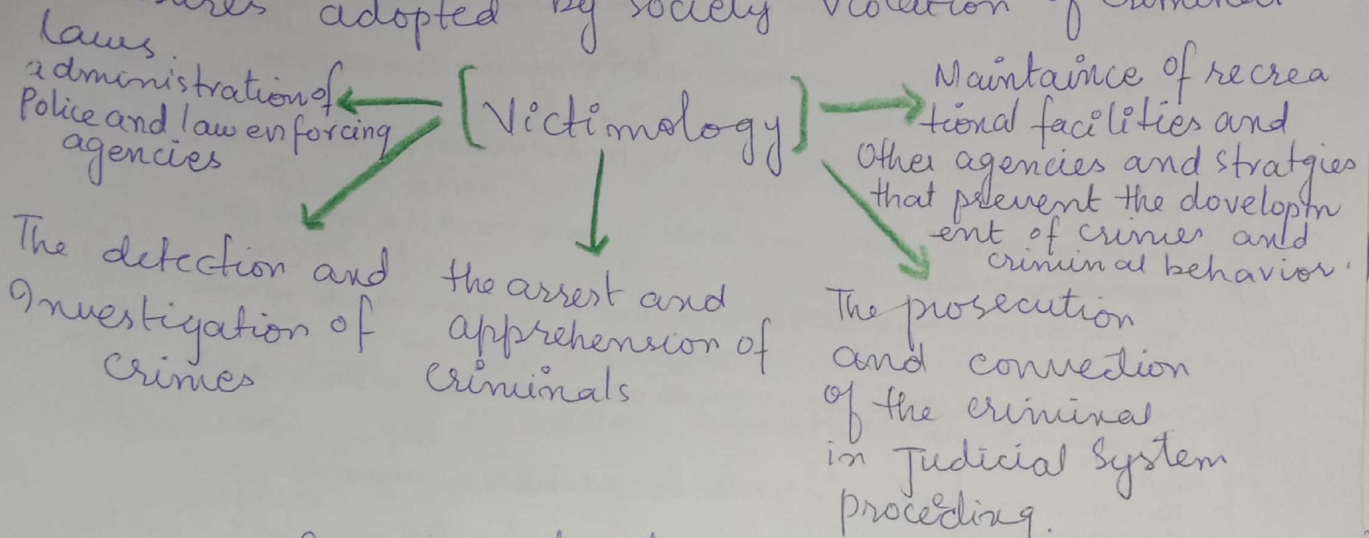 adopted by society violation of
laws.
administration of
Police and law enforcing
agencies
[Victimology]
Maintaince of recrea
tional facilities and
Other agencies and stratgies
that prevent the dovelopm
ent of crimes and
criminal behavior.
The detection and
Investigation of
crimes
the arrest and
apprehension of
criminals
The prosecution
and convection
of the criminal
in Judicial System
proceeding.